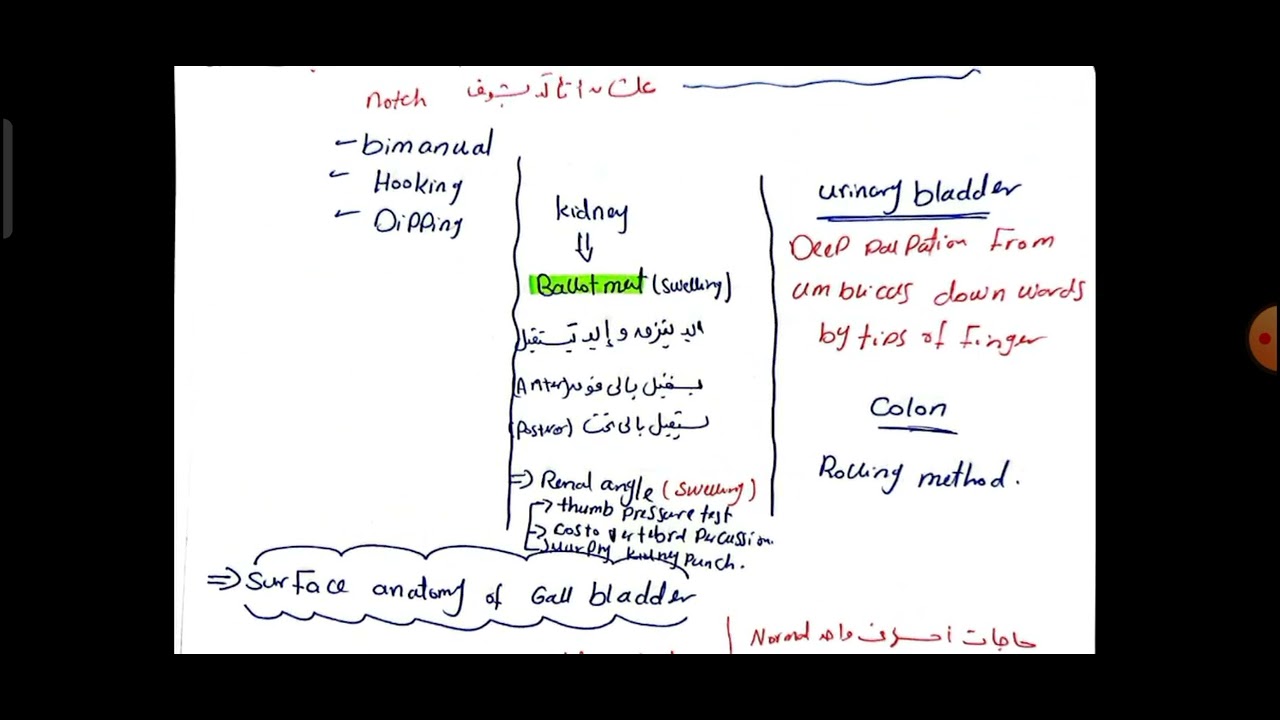 notch علشان اتأكد بشوف
- bimanual
- Hooking
- Dipping
kidney
⇓
Ballotment (swelling)
اليد و إليد تستقبل
بالى فوق (Anter)
تستقبل بالى تحت (Posterior)
⇒ Renal angle (swelling)
→ thumb pressure test
→ Costo vertebral percussion
→ Murphy kidney Punch.
urinary bladder
Deep palpation From
umblicus down words
by tips of Finger
Colon
Rolling method.
⇒ Surface anatomy of Gall bladder
Normal حاجات أعرف